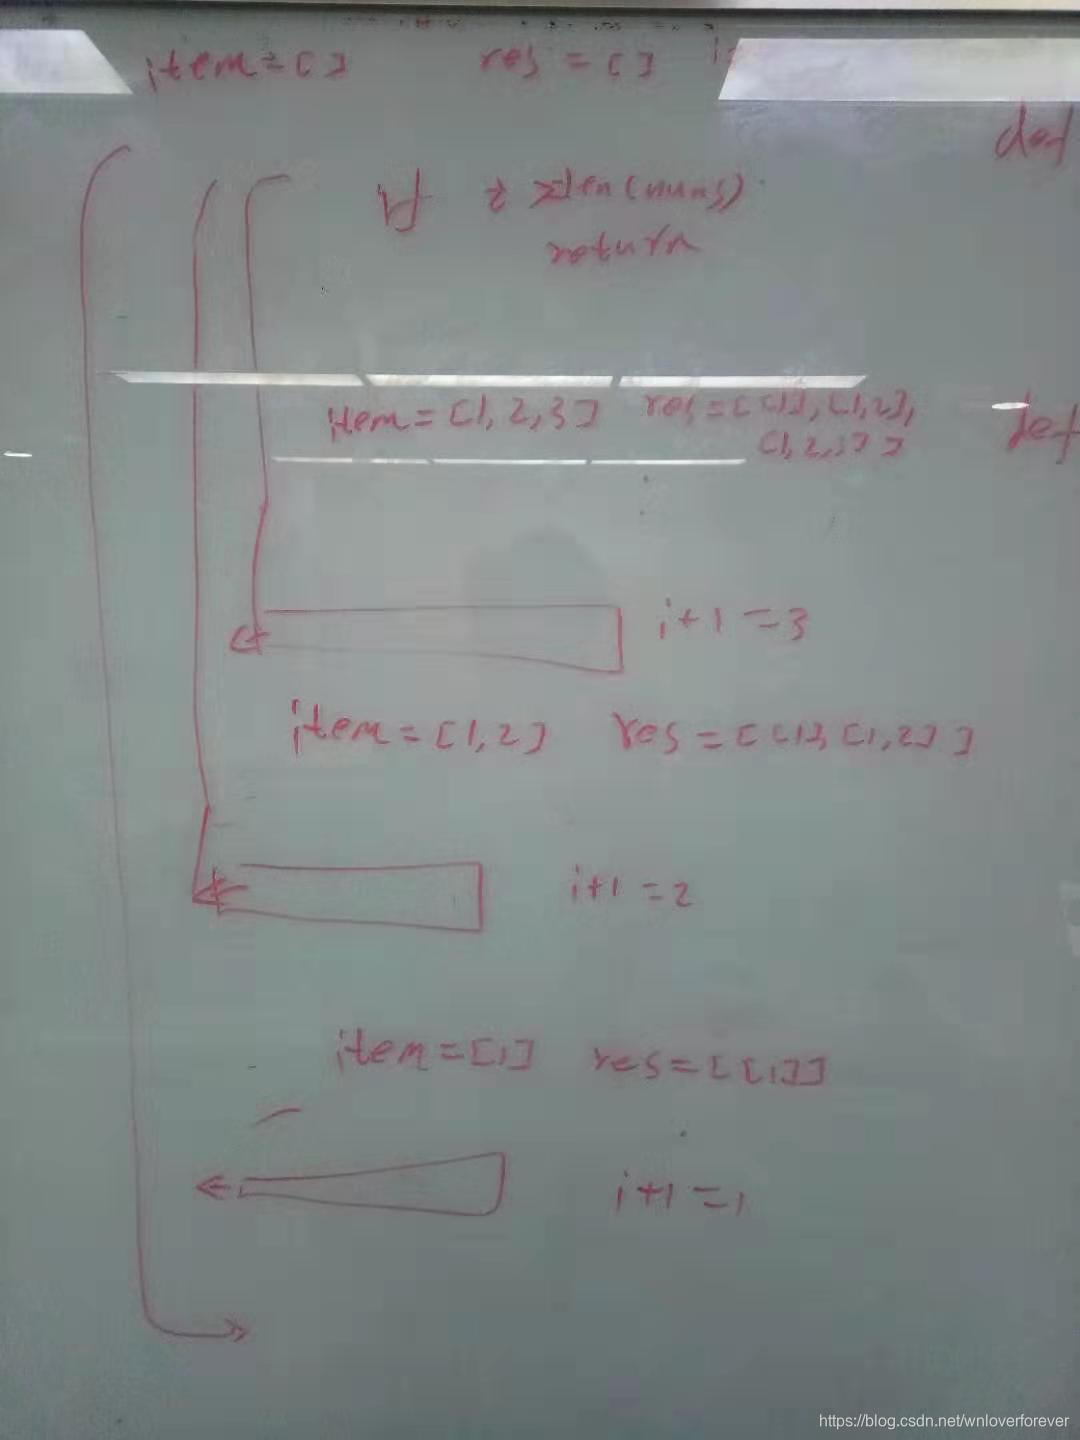 item = [] res = []
def
if i >= len(nums)
return
item = [1, 2, 3] res = [[1], [1, 2],
[1, 2, 3]]
def
i+1 = 3
item = [1, 2] res = [[1], [1, 2]]
i+1 = 2
item = [1] res = [[1]]
i+1 = 1
https://blog.csdn.net/wnloverforever